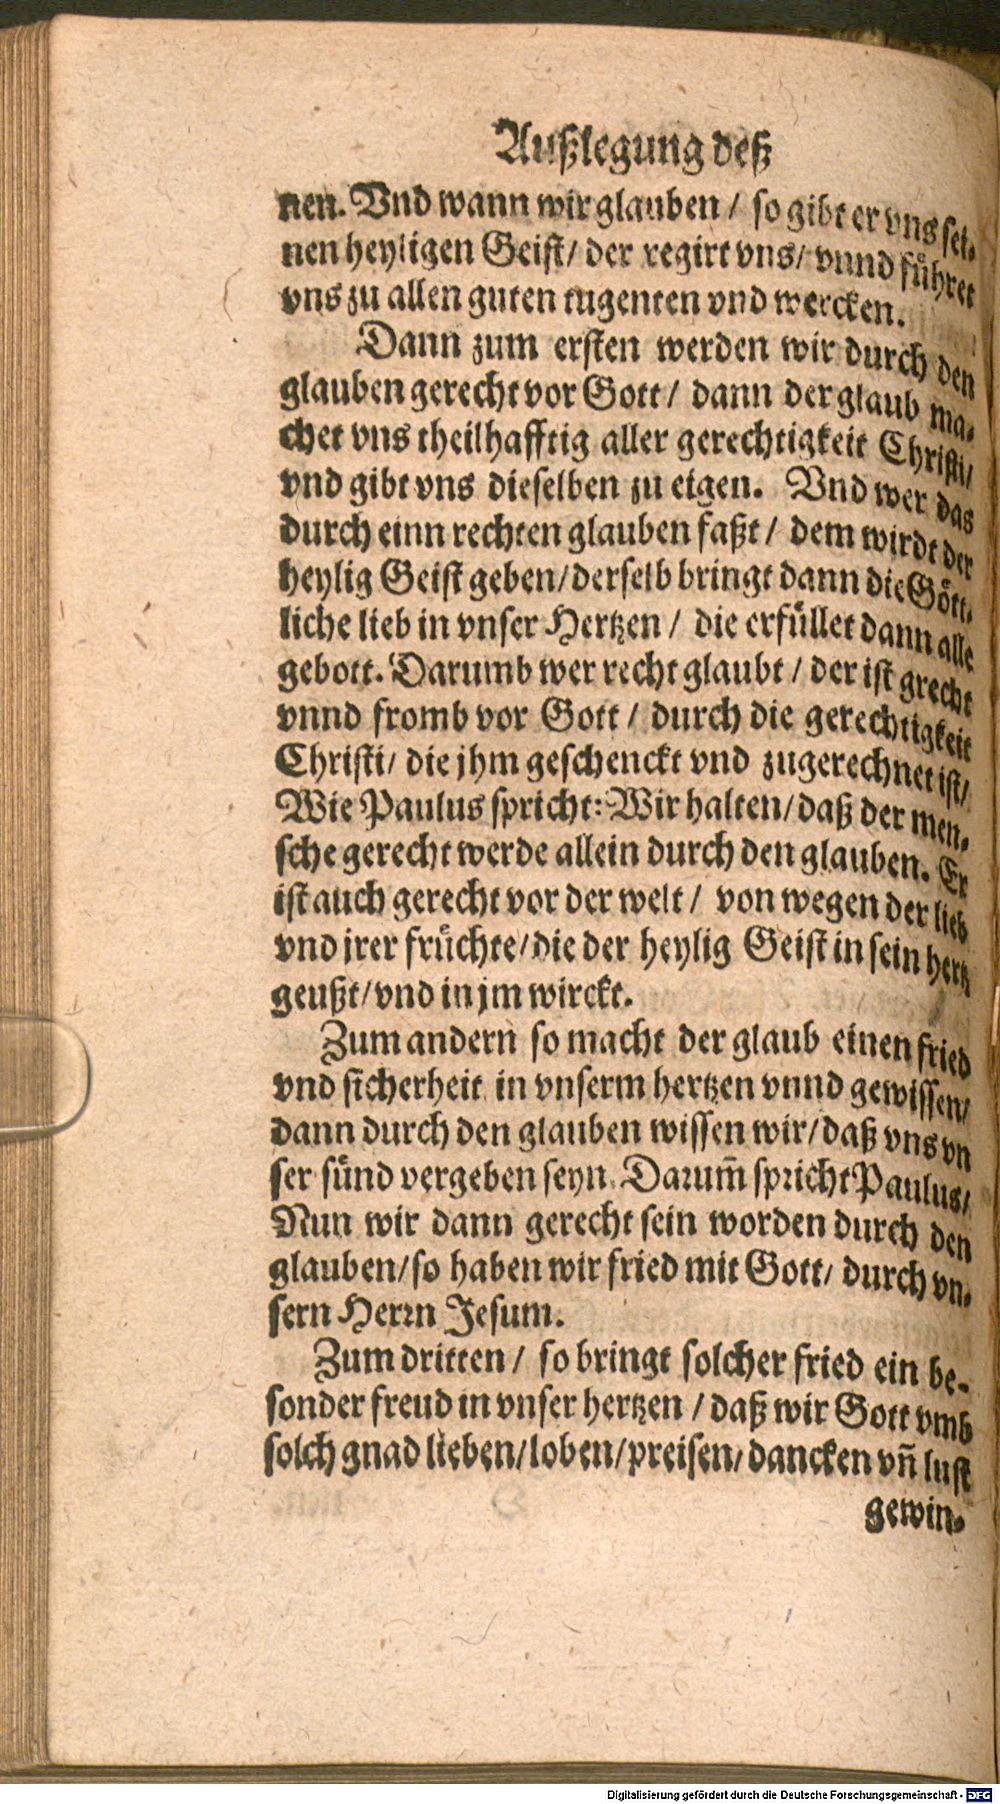 Außlegung deß
nen. Vnd wann wir glauben / so gibt er vns sei-
nen heyligen Geist / der regirt vns / vnnd fuͤhret
vns zu allen guten tugenten vnd wercken.
Dann zum ersten werden wir durch den
glauben gerecht vor Gott / dann der glaub ma-
chet vns theilhafftig aller gerechtigkeit Christi /
vnd gibt vns dieselben zu eigen. Vnd wer das
durch einn rechten glauben faßt / dem wirdt der
heylig Geist geben / derselb bringt dann die Goͤtt-
liche lieb in vnser Hertzen / die erfuͤllet dann alle
gebott. Darumb wer recht glaubt / der ist grecht
vnnd fromb vor Gott / durch die gerechtigkeit
Christi / die jhm geschenckt vnd zugerechnet ist /
Wie Paulus spricht: Wir halten / daß der men-
sche gerecht werde allein durch den glauben. Er
ist auch gerecht vor der welt / von wegen der lieb
vnd jrer fruͤchte / die der heylig Geist in sein hertz
geußt / vnd in jm wirckt.
Zum andern so macht der glaub einen fried
vnd sicherheit in vnserm hertzen vnnd gewissen /
dann durch den glauben wissen wir / daß vns vn
ser suͤnd vergeben seyn. Darum̃ spricht Paulus /
Nun wir dann gerecht sein worden durch den
glauben / so haben wir fried mit Gott / durch vn-
sern Herrn Jesum.
Zum dritten / so bringt solcher fried ein be-
sonder freud in vnser hertzen / daß wir Gott vmb
solch gnad lieben / loben / preisen / dancken vn̄ lust
gewin-
Digitalisierung gefördert durch die Deutsche Forschungsgemeinschaft - DFG